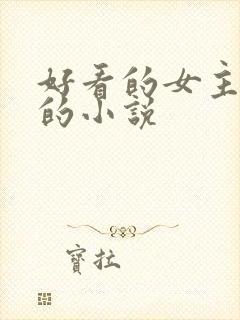 好看的女主
的小说
寶拉